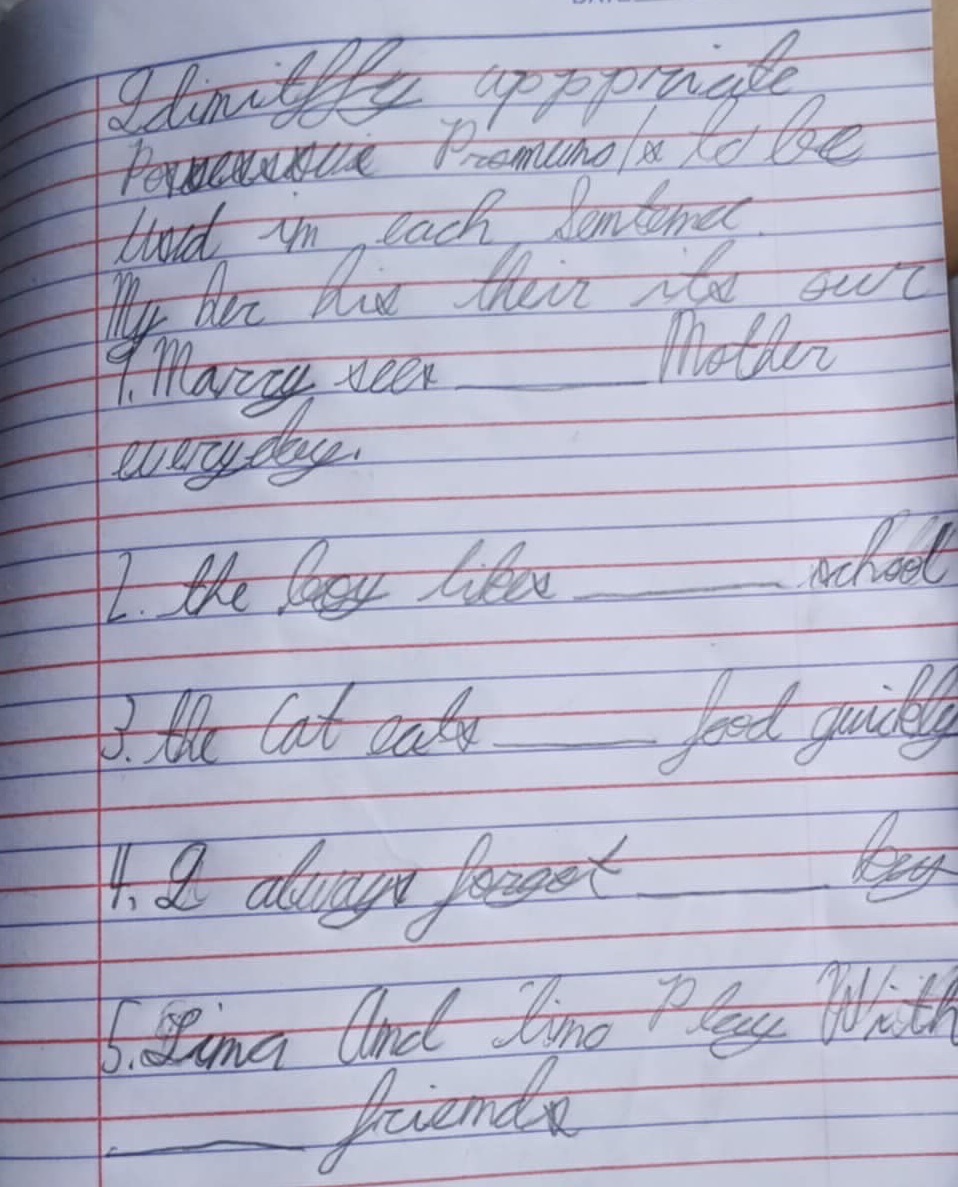 Idimitffy appropriate
Possessive Pronouns/s to be
Used in each Sentence.
My her his their its our
1. Marry sees ______ Mother
everyday.
2. the boy likes ______ school
3. the Cat eats ______ food quickly
4. I always forget ______ key
5. Lima And Lima Play With
______ friends